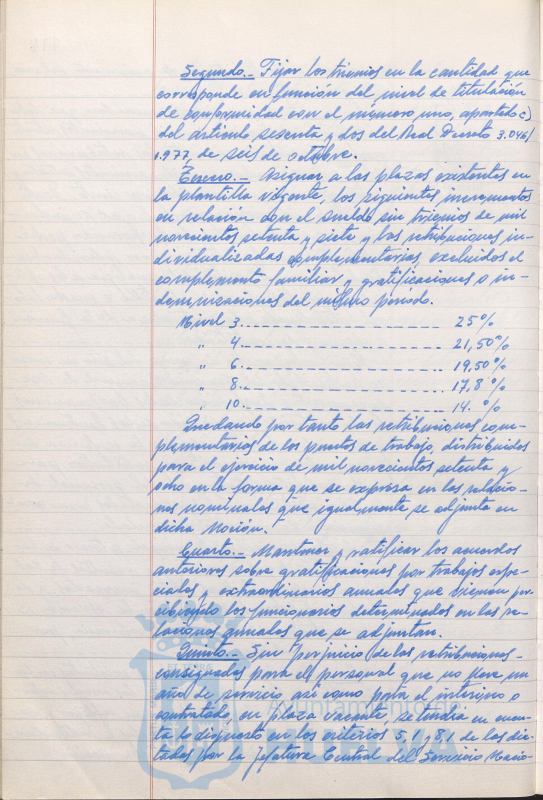 Segundo.- Fijar los trienios en la cantidad que
corresponde en función del nivel de titulación
de conformidad con el número uno, apartado c)
del artículo sesenta y dos del Real Decreto 3.046/
1.977, de seis de octubre.
Tercero.- Asignar a las plazas existentes en
la plantilla vigente, los siguientes incrementos
en relación con el sueldo sin trienios de mil
novecientos setenta y siete y las retribuciones in-
dividualizadas complementarias excluidos el
complemento familiar y gratificaciones o in-
demnizaciones del mismo periodo.
Nivel 3.---------------- 25%
" 4.---------------- 21,50%
" 6.---------------- 19,50%
" 8.---------------- 17,8%
" 10.---------------- 14. %
Quedando por tanto las retribuciones com-
plementarias de los puestos de trabajo, distribuidos
para el ejercicio de mil novecientos setenta y
ocho en la forma que se expresa en las relacio-
nes nominales que igualmente se adjunta en
dicha Moción.
Cuarto.- Mantener y ratificar los acuerdos
anteriores sobre gratificaciones por trabajos espe-
ciales y extraordinarios anuales que vienen per-
cibiendo los funcionarios determinados en las re-
laciones anuales que se adjuntan.
Quinto.- Sin perjuicio de las retribuciones-
consignadas para el personal que no lleve un
año de servicio así como para el interino o
contratado, en plaza vacante, se tendrá en cuen-
ta lo dispuesto en los criterios 5,1 y 8,1 de las dic-
tadas por la Jefatura Central del Servicio Nacio-
Ayuntamiento de